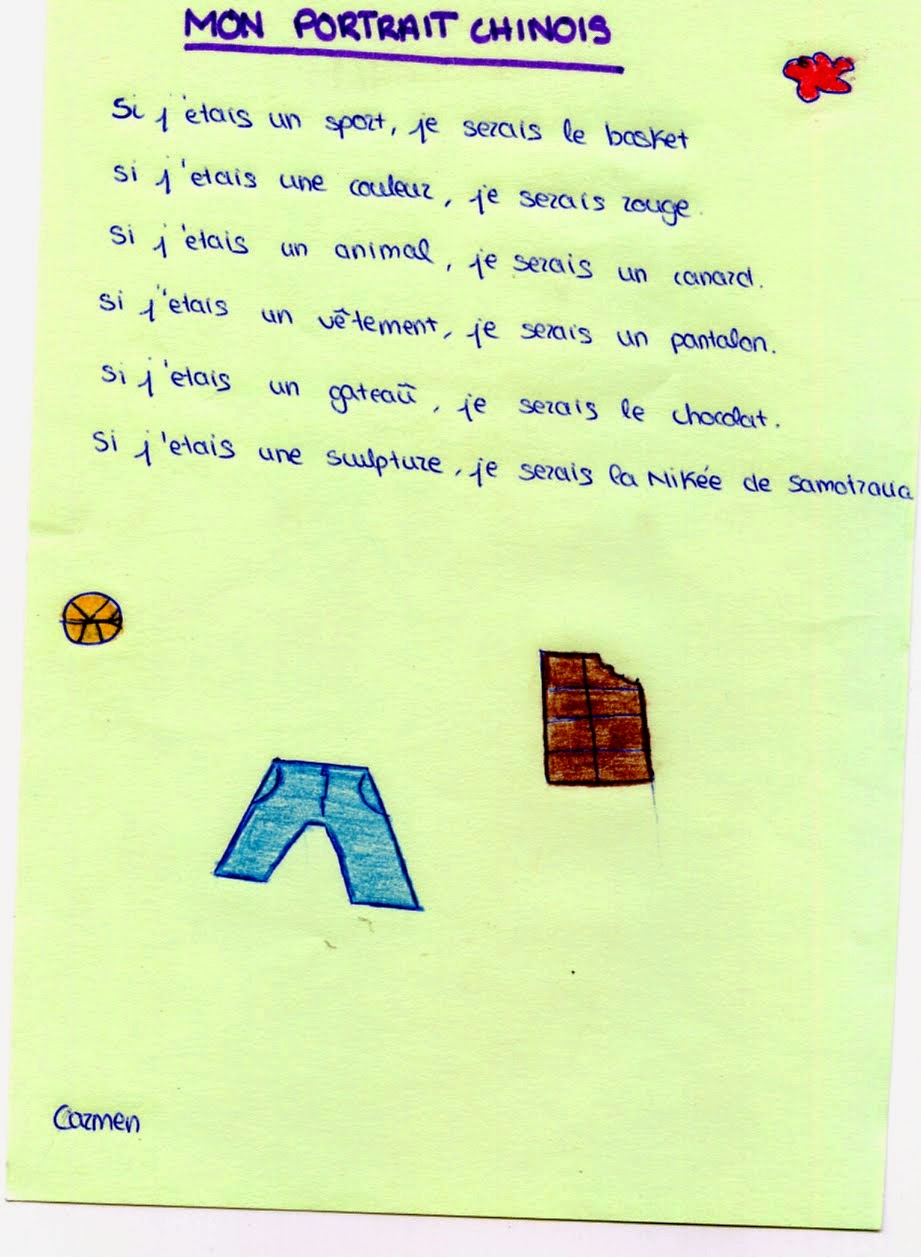 MON PORTRAIT CHINOIS
Si j'étais un sport, je serais le basket
si j'etais une couleur, je serais rouge.
si j'étais un animal, je serais un canard.
si j'etais un vêtement, je serais un pantalon.
si j'etais un gateaû, je serais le chocolat.
si j'etais une sculpture, je serais la Nikée de
Carmen